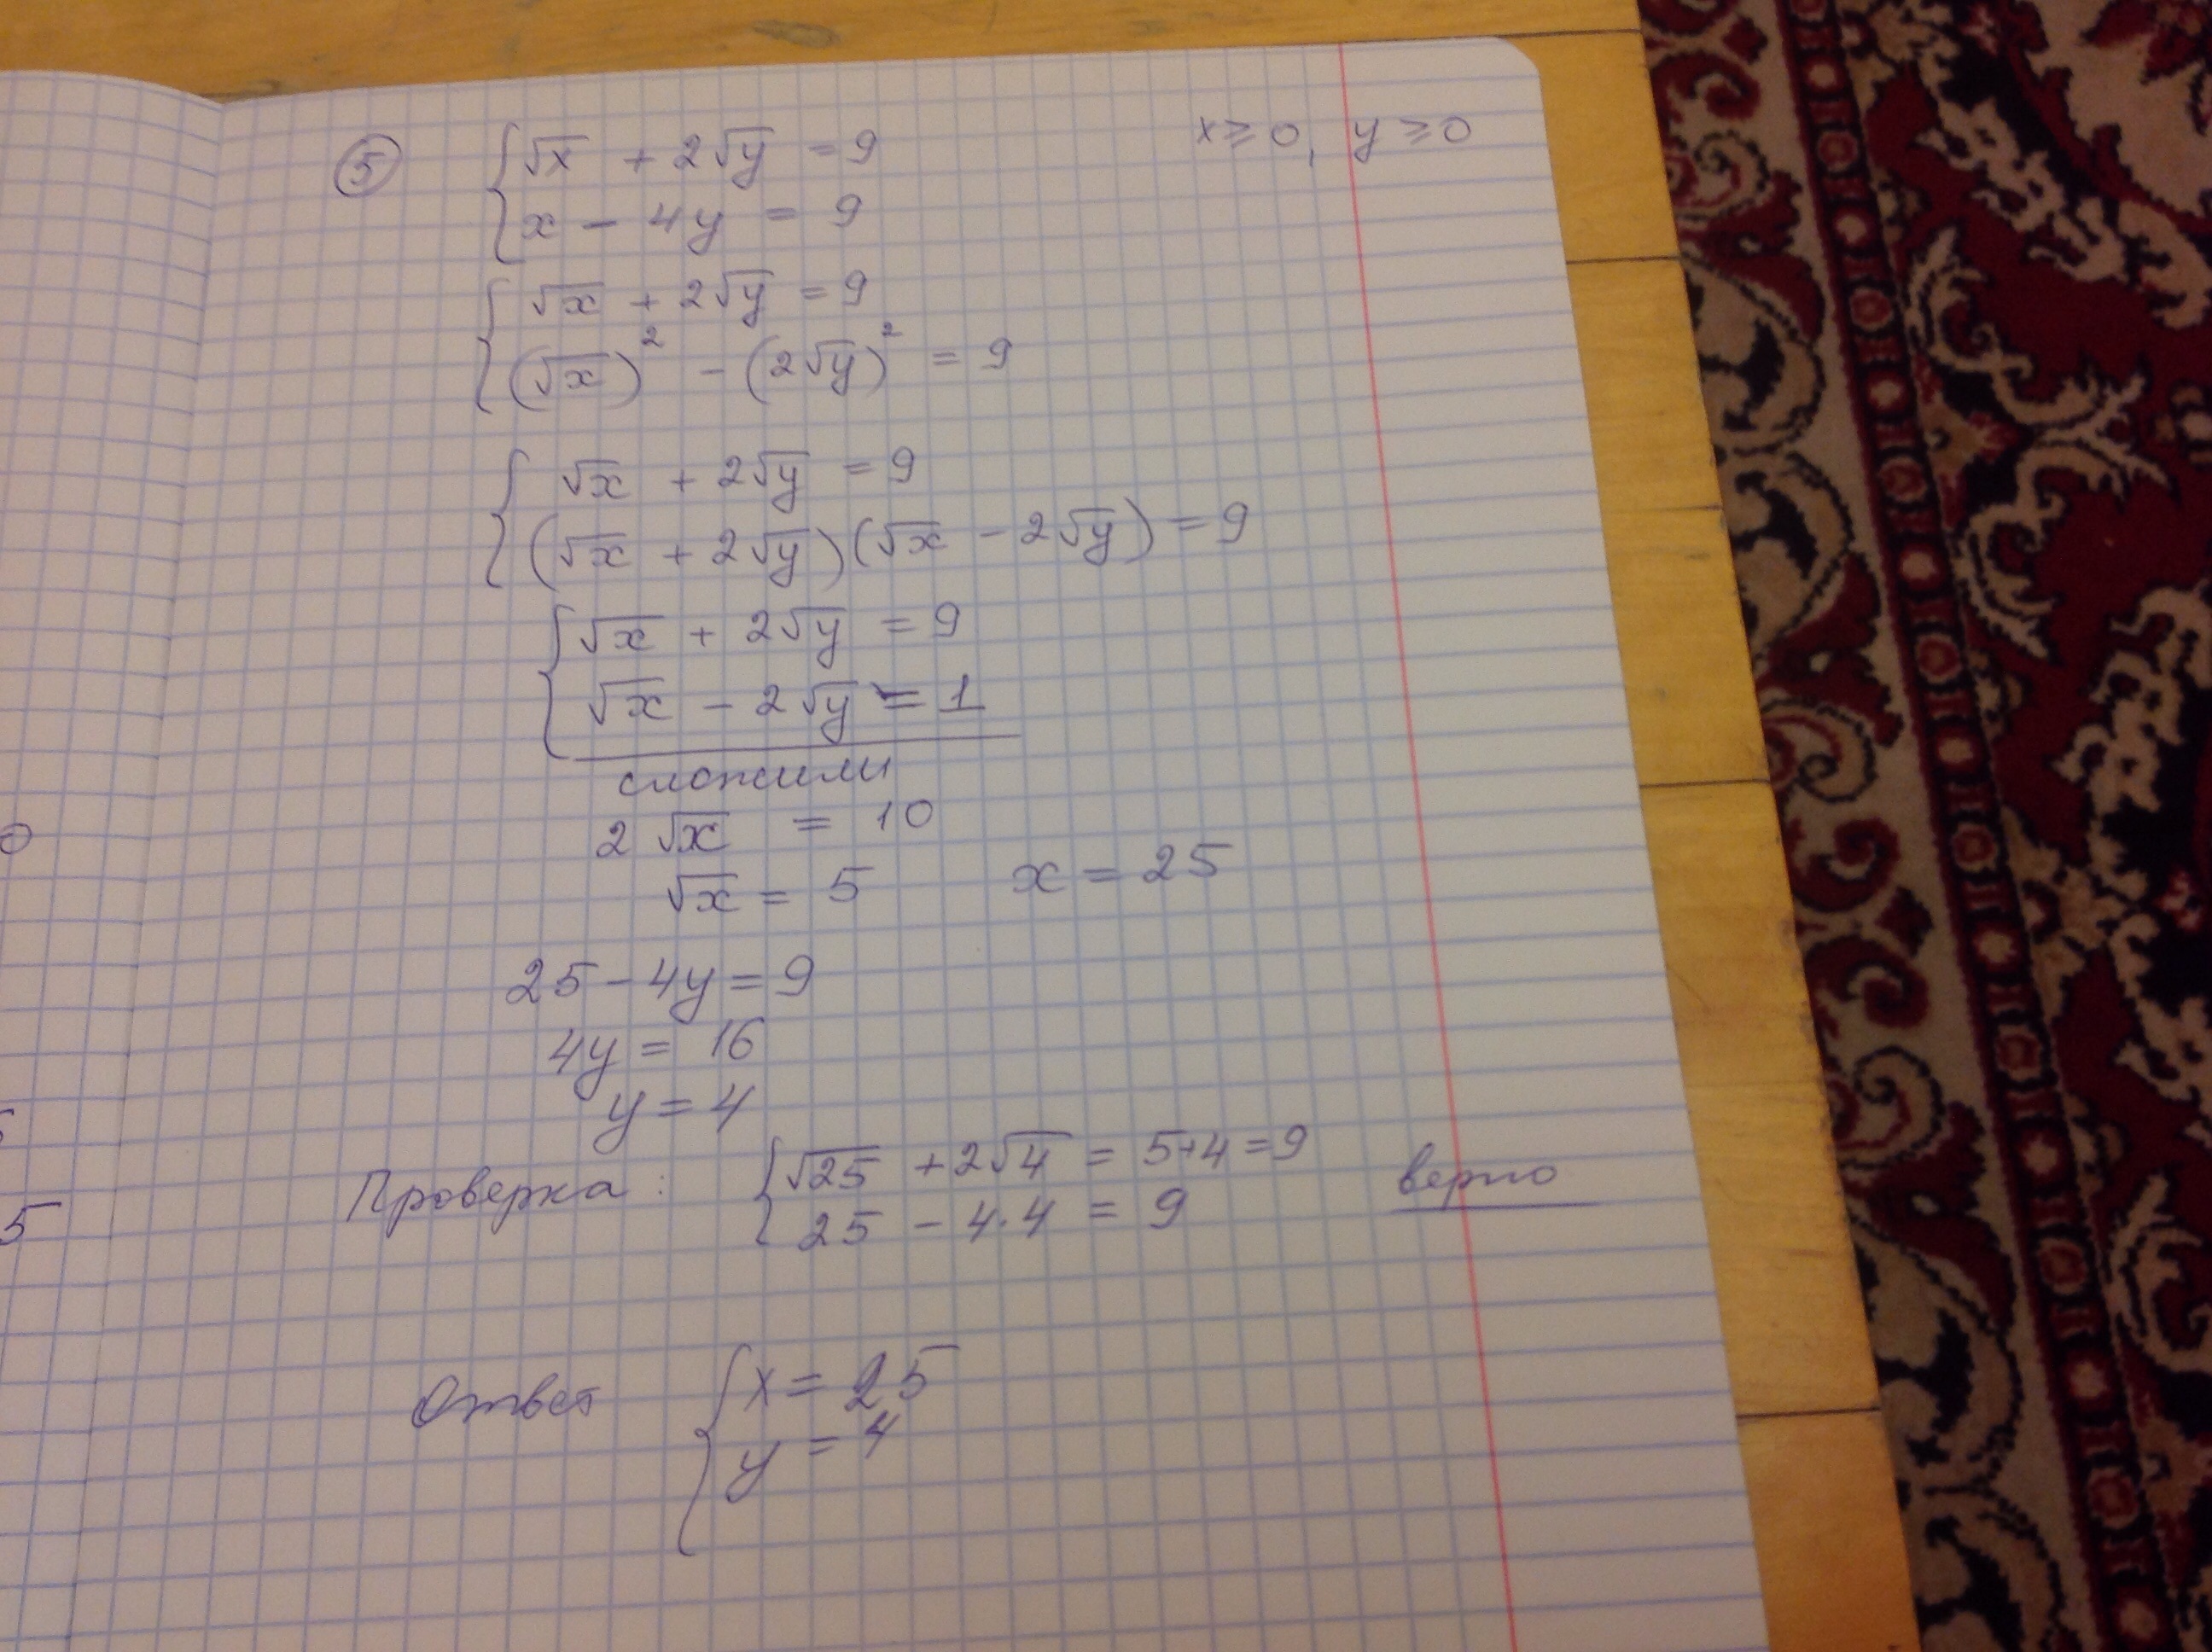 ⑤ { √x + 2√y = 9    x ≥ 0, y ≥ 0
x - 4y = 9
{ √x + 2√y = 9
(√x)² - (2√y)² = 9
{ √x + 2√y = 9
(√x + 2√y)(√x - 2√y) = 9
{ √x + 2√y = 9
√x - 2√y = 1
сложили
2√x = 10
√x = 5    x = 25
25 - 4y = 9
4y = 16
y = 4
Проверка: { √25 + 2√4 = 5+4 = 9    верно
25 - 4·4 = 9
Ответ { x = 25
y = 4
0
5